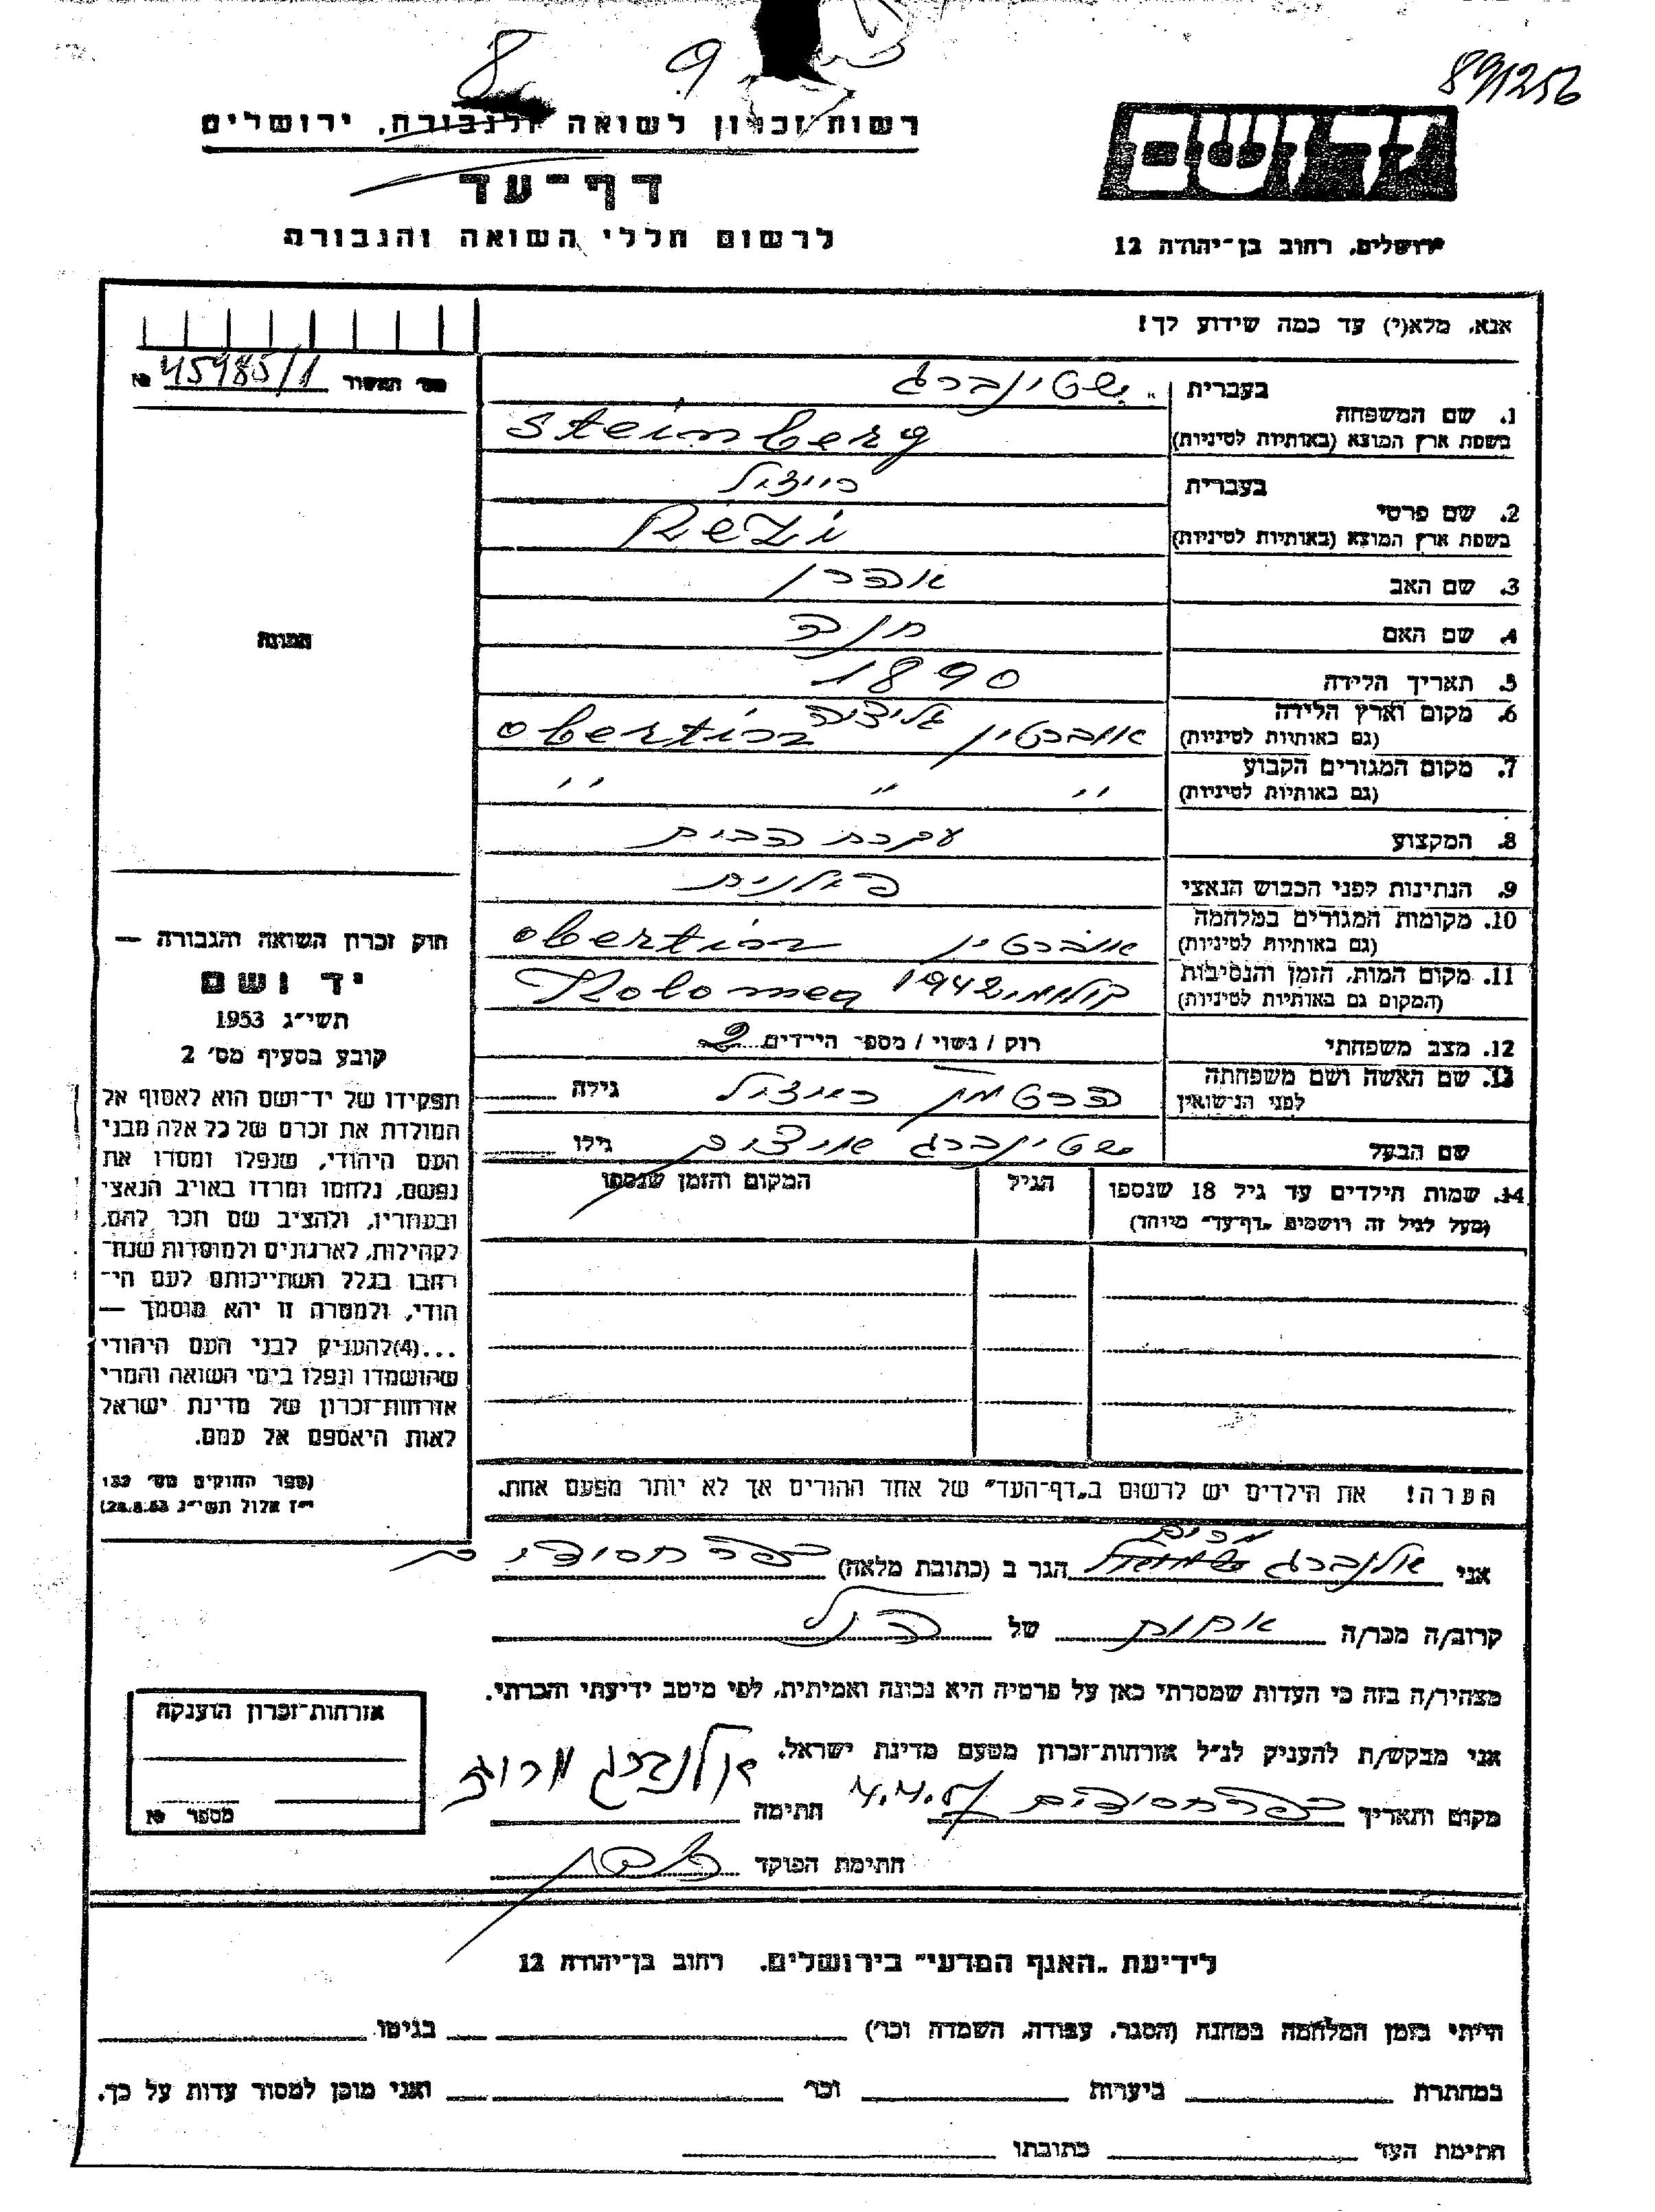 8 9
891256
רשות זכרון לשואה ולגבורה, ירושלים
דף-עד
לרשום חללי השואה והגבורה
יד ושם
ירושלים, רחוב בן-יהודה 12
אנא, מלא(י) עד כמה שידוע לך!
בעברית
שטינברג
1. שם המשפחה
בשפת ארץ המוצא (באותיות לטיניות)
Steinberg
בעברית
רייזל
2. שם פרטי
בשפת ארץ המוצא (באותיות לטיניות)
Rezi
3. שם האב
אהרן
4. שם האם
חנה
5. תאריך הלידה
1890
6. מקום וארץ הלידה
(גם באותיות לטיניות)
אוברטין גליציה obertin
7. מקום המגורים הקבוע
(גם באותיות לטיניות)
" " "
8. המקצוע
עקרת הבית
9. הנתינות לפני הכבוש הנאצי
פולנית
10. מקומות המגורים במלחמה
(גם באותיות לטיניות)
אוברטין obertin
11. מקום המות, הזמן והנסיבות
(המקום גם באותיות לטיניות)
1942 Kolomea
12. מצב משפחתי
רוק / נשוי / מספר הילדים 2
13. שם האשה ושם משפחתה
לפני הנישואין
הרטמן רייזל גילה
שם הבעל
שטינברג גילו
14. שמות הילדים עד גיל 18 שנספו
(מעל לגיל זה רושמים "דף-עד" מיוחד)
הגיל
המקום והזמן שנספו
הערה! את הילדים יש לרשום ב"דף-העד" של אחד ההורים אך לא יותר מפעם אחת.
מס' תאשור № 45985/1
תמונה
חוק זכרון השואה והגבורה —
יד ושם
תשי"ג 1953
קובע בסעיף מס' 2
תפקידו של יד-ושם הוא לאסוף אל
המולדת את זכרם של כל אלה מבני
העם היהודי, שנפלו ומסרו את
נפשם, נלחמו ומרדו באויב הנאצי
ובעוזריו, ולהציב שם וזכר להם,
לקהילות, לארגונים ולמוסדות שנח-
רבו בגלל השתייכותם לעם הי-
הודי, ולמטרה זו יהא מוסמך —
...(4)להעניק לבני העם היהודי
שהושמדו ונפלו בימי השואה והמרי
אזרחות-זכרון של מדינת ישראל
לאות היאספם אל עמם.
(ספר החוקים מס' 132
י"ז אלול תשי"ג 28.8.53)
אני אלנברג הגר ב (כתובת מלאה) כפר חסידים
קרוב/ה מכר/ה אחות של הנ"ל
מצהיר/ה בזה כי העדות שמסרתי כאן על פרטיה היא נכונה ואמיתית, לפי מיטב ידיעתי והכרתי.
אני מבקש/ת להעניק לנ"ל אזרחות-זכרון מטעם מדינת ישראל.
מקום ותאריך כפר חסידים חתימה אלנברג
חתימת הפוקד
אזרחות-זכרון הוענקה
מספר №
לידיעת "האגף המדעי" בירושלים. רחוב בן-יהודה 12
הייתי בזמן המלחמה במחנה (הסגר, עבודה, השמדה וכו') בגיטו
במחתרת ביערות וכו' ואני מוכן למסור עדות על כך.
חתימת העד כתובתו